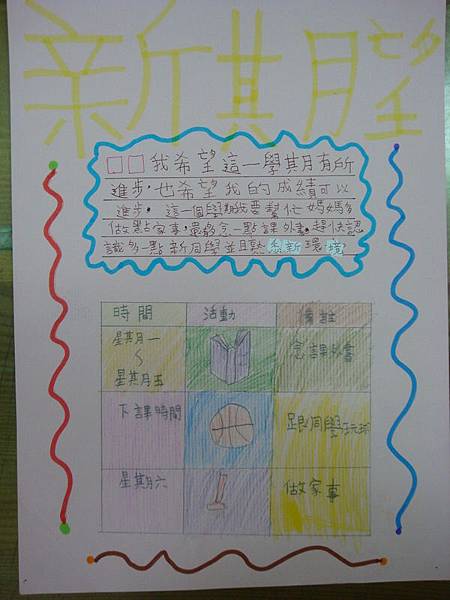 新期望
□□我希望這一學期有所
進步,也希望我的成績可以
進步,這一個學期我要幫忙媽媽多
做點家事,最後念一點課外書,趕快認
識多一點新同學並且熟悉新環境
時間 活動 備註
星期一
~
星期五
念課外書
下課時間 跟同學玩球
星期六 做家事